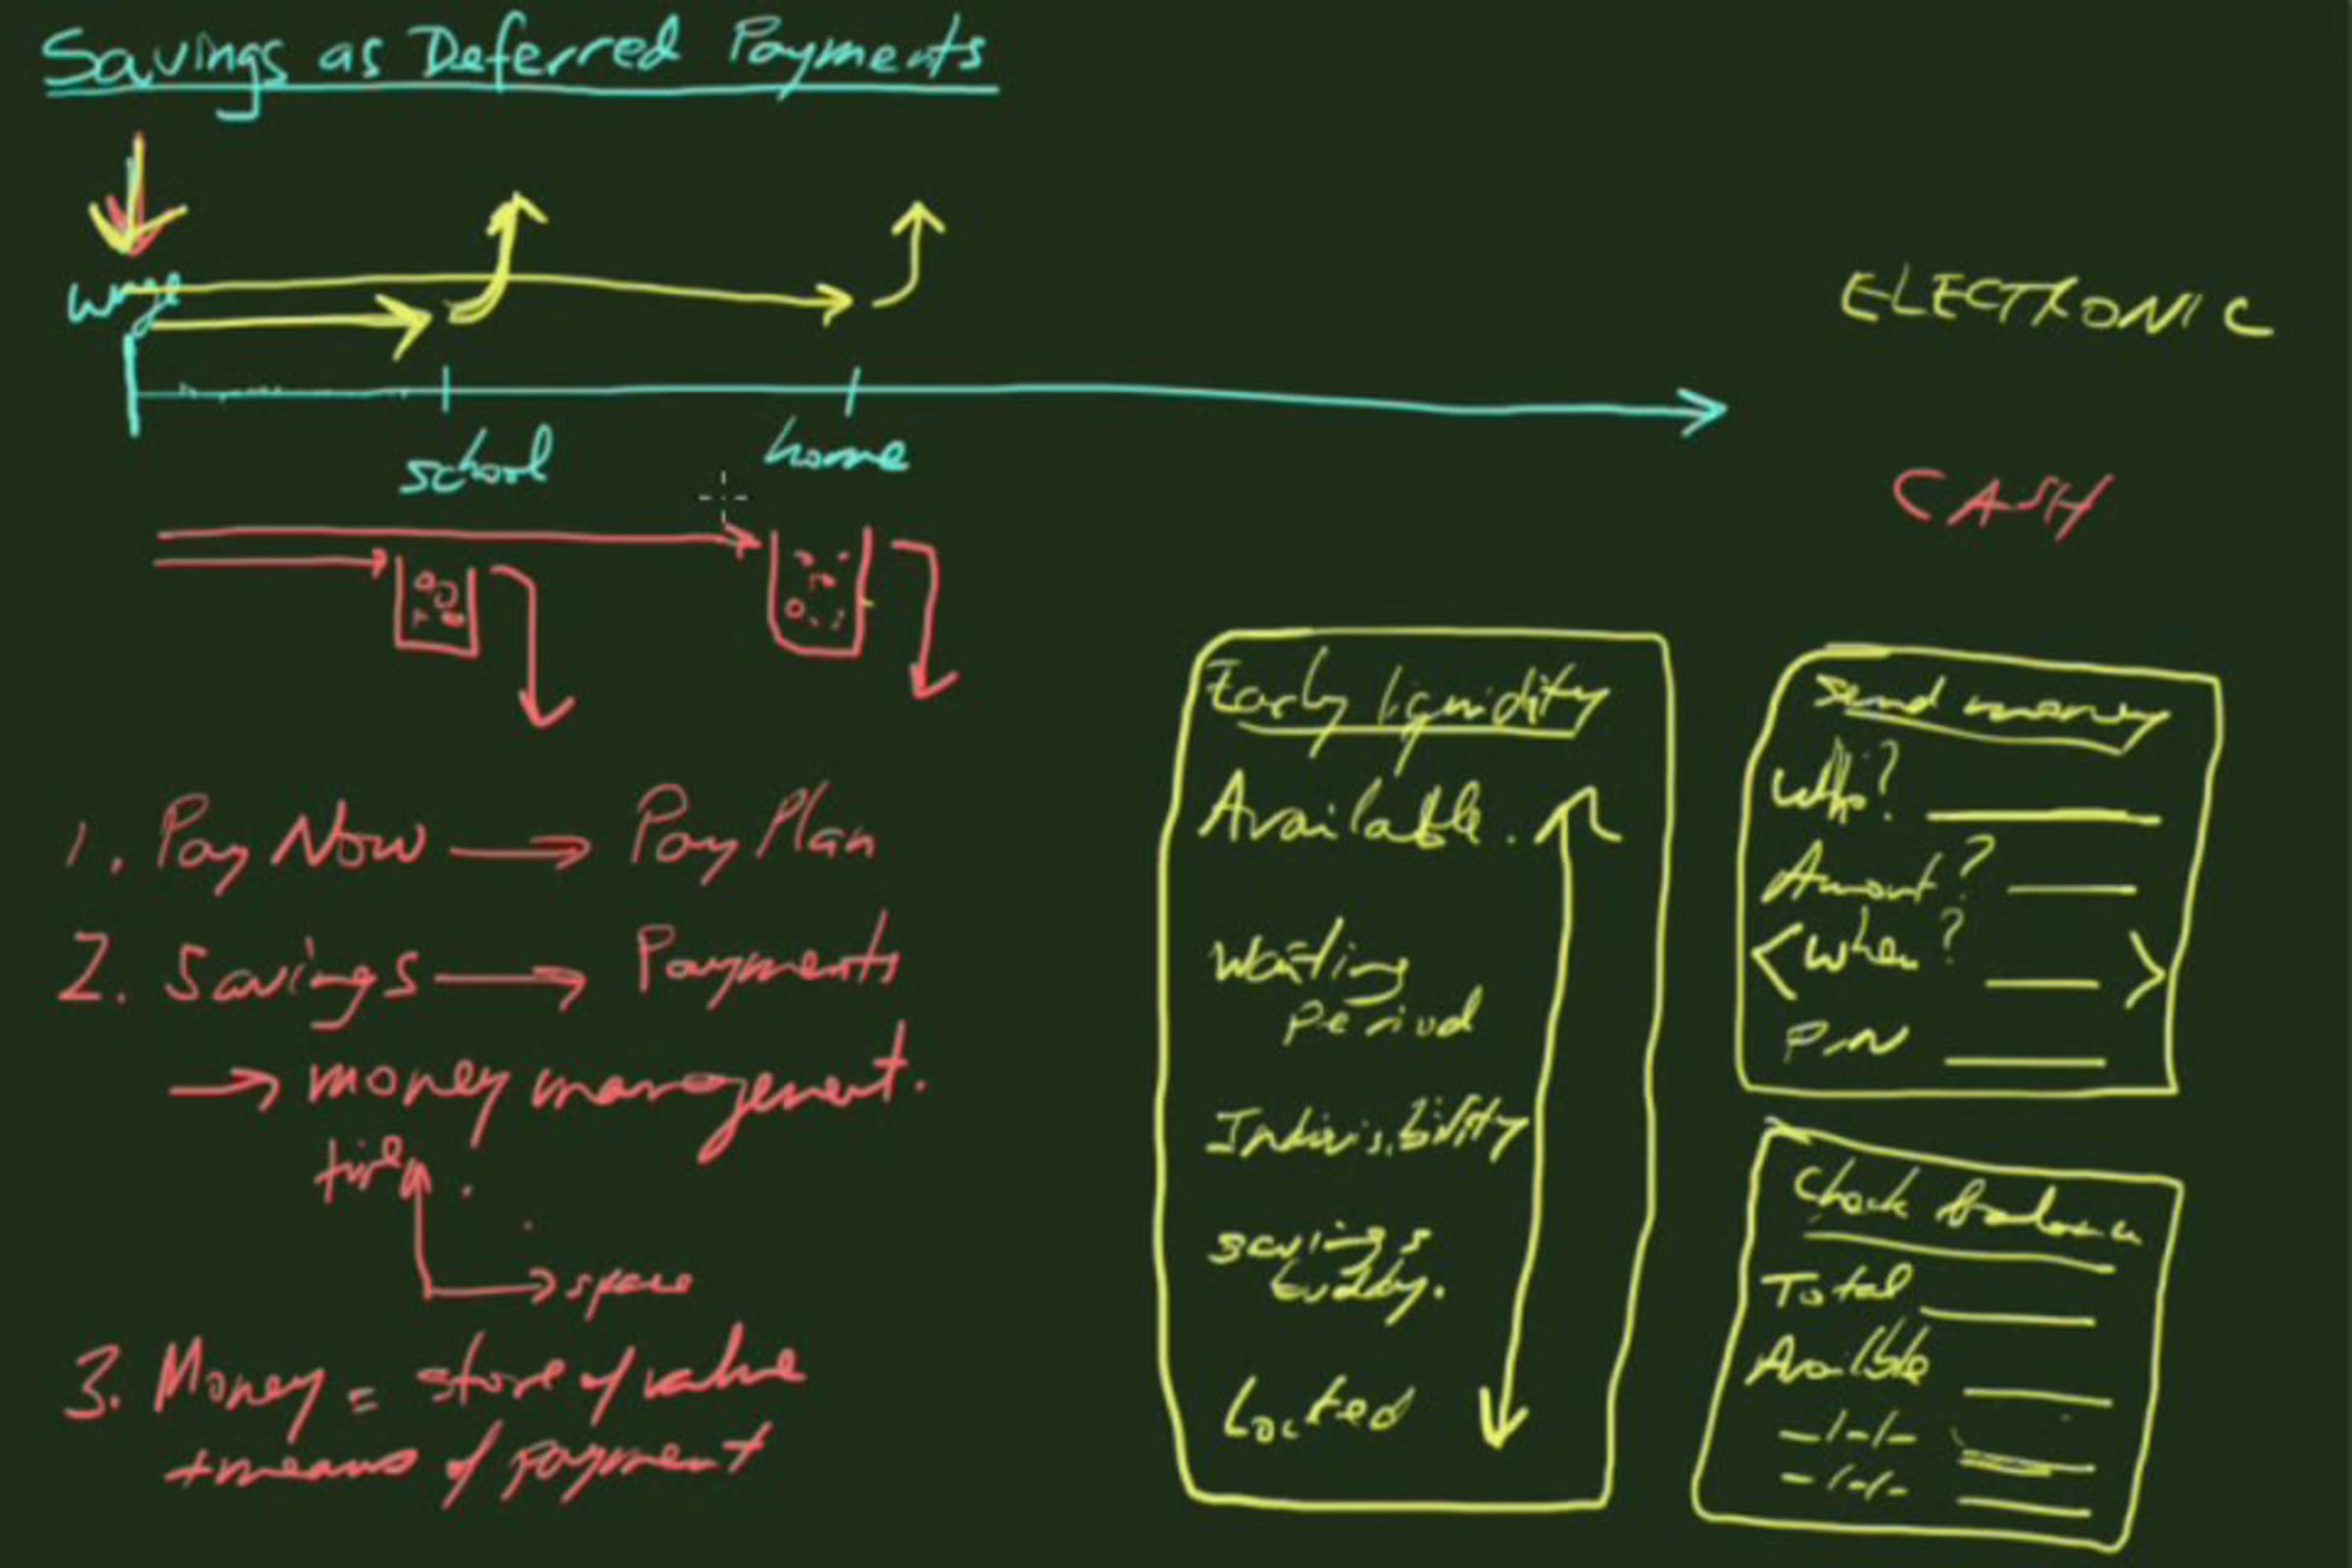 Savings as Deferred Payments
wage
ELECTRONIC
school
home
CASH
1. Pay Now → Pay Plan
2. Savings → Payments
→ money management.
time
space
3. Money = store of value
+ means of payment
Early liquidity
Available.
Waiting
Period
Indivisibility
savings
buddy.
Locked
Send money
Who?
Amount?
<When? >
PIN
Check balance
Total
Available
_/_/_
_/_/_